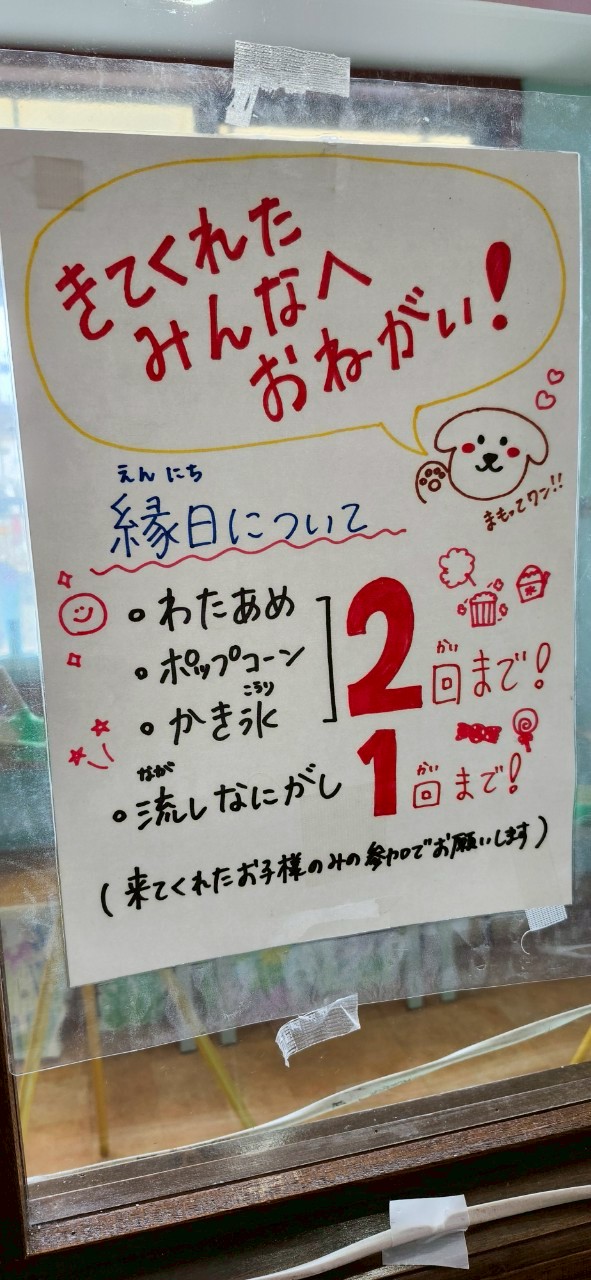 きてくれた
みんなへ
おねがい!
まもってワン!!
えんにち
縁日について
・わたあめ
・ポップコーン
こおり
・かき氷
2回まで!
かい
なが
・流しなにがし
1回まで!
かい
(来てくれたお子様のみの参加でお願いします)